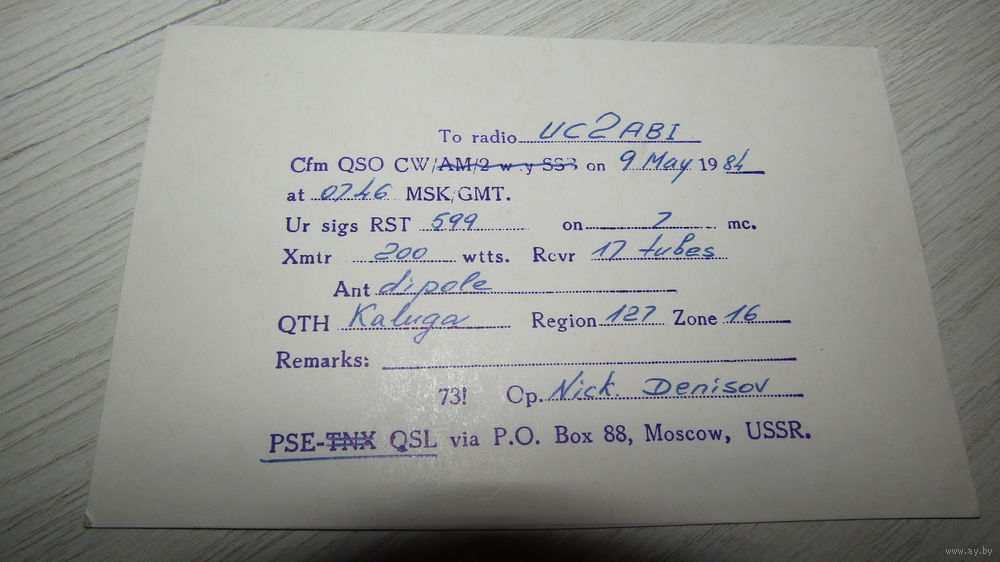 To radio UC2ABI
Cfm QSO CW/AM/2 w.y SSB on 9 May 1984
at 0746 MSK/GMT.
Ur sigs RST 599 on 7 mc.
Xmtr 200 wtts. Rcvr 17 tubes
Ant dipole
QTH Kaluga Region 127 Zone 16
Remarks:
73! Op. Nick. Denisov
PSE-TNX QSL via P.O. Box 88, Moscow, USSR.
www.ay.by